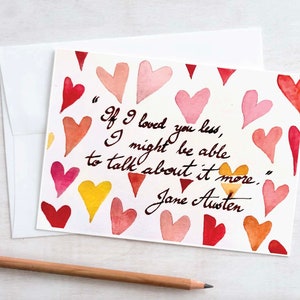 "If I loved you less,
I might be able
to talk about it more."
Jane Austen